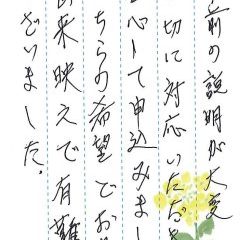 前の説明が大変
切に対応いただき
心して申込みまし
ちらの希望でお
来映えで有難
ざいました。